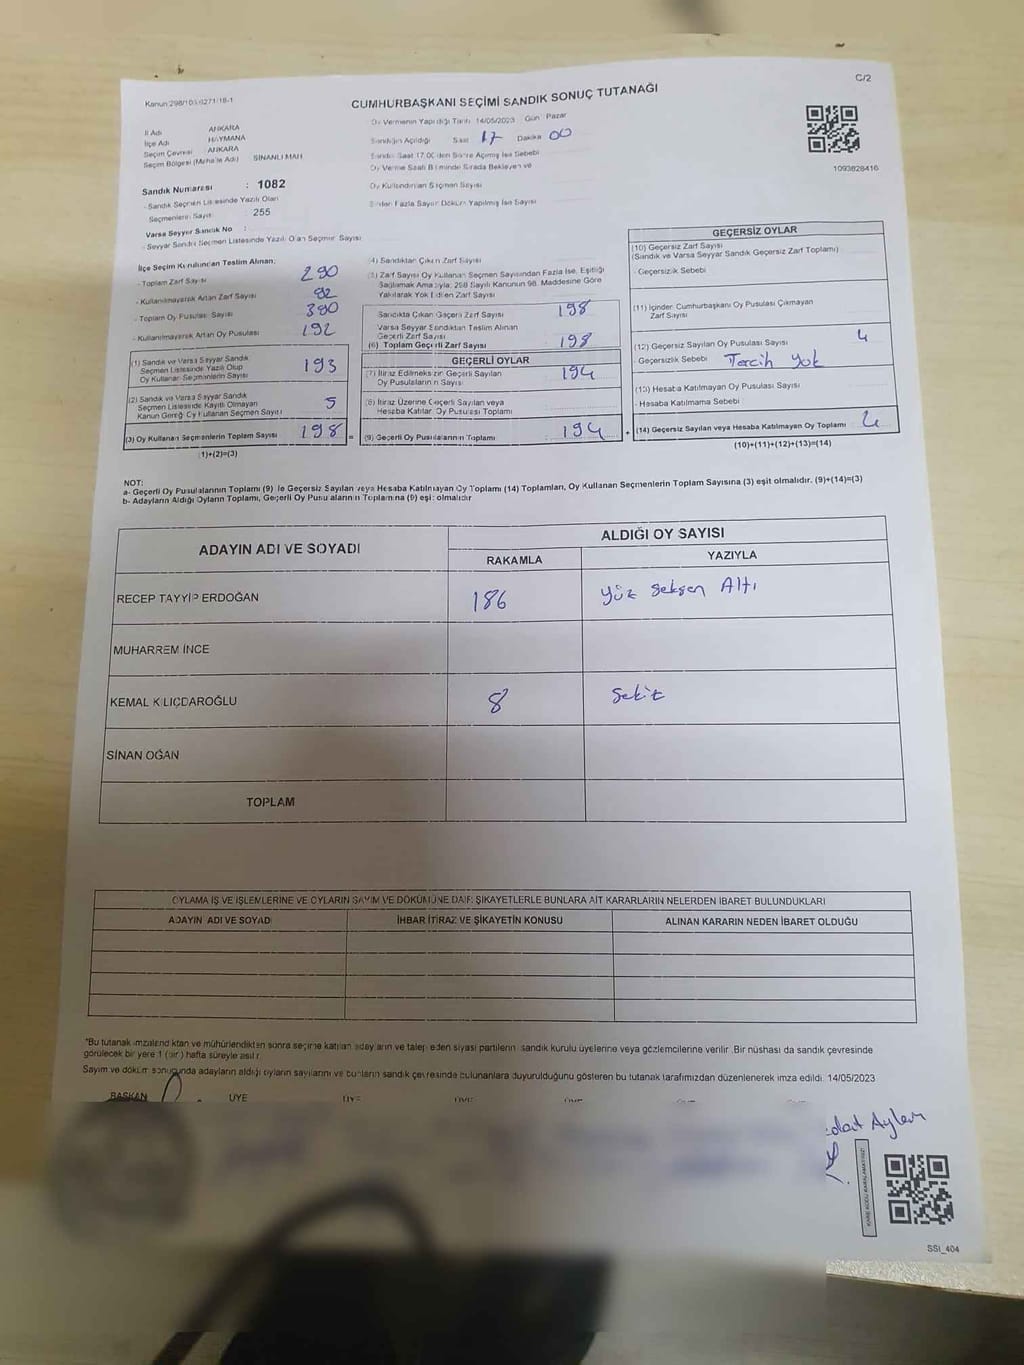 C/2
Kanun:298/103,6271/18-1
CUMHURBAŞKANI SEÇİMİ SANDIK SONUÇ TUTANAĞI
İl Adı ANKARA
İlçe Adı HAYMANA
Seçim Çevresi ANKARA
Seçim Bölgesi (Mahalle Adı) SİNANLI MAH
Oy Vermenin Yapıldığı Tarih 14/05/2023 Gün Pazar
Sandığın Açıldığı Saat 17 Dakika 00
Sandık Saat 17.00'den Sonra Açılmış İse Sebebi
Oy Verme Saati Bitiminde Sırada Bekleyen ve
Oy Kullandırılan Seçmen Sayısı
Birden Fazla Sayım Döküm Yapılmış İse Sayısı
1093828416
Sandık Numarası : 1082
- Sandık Seçmen Listesinde Yazılı Olan
Seçmenlerin Sayısı 255
Varsa Seyyar Sandık No :
- Seyyar Sandık Seçmen Listesinde Yazılı Olan Seçmen Sayısı
İlçe Seçim Kurulundan Teslim Alınan:
- Toplam Zarf Sayısı 290
- Kullanılmayarak Artan Zarf Sayısı 92
- Toplam Oy Pusulası Sayısı 390
- Kullanılmayarak Artan Oy Pusulası 192
(1) Sandık ve Varsa Seyyar Sandık
Seçmen Listesinde Yazılı Olup
Oy Kullanan Seçmenlerin Sayısı 193
(2) Sandık ve Varsa Seyyar Sandık
Seçmen Listesinde Kayıtlı Olmayan
Kanun Gereği Oy Kullanan Seçmen Sayısı 5
(3) Oy Kullanan Seçmenlerin Toplam Sayısı 198 =
(1)+(2)=(3)
(4) Sandıktan Çıkan Zarf Sayısı
(5) Zarf Sayısı Oy Kullanan Seçmen Sayısından Fazla İse, Eşitliği
Sağlamak Amacıyla; 298 Sayılı Kanunun 98. Maddesine Göre
Yakılarak Yok Edilen Zarf Sayısı
Sandıkta Çıkan Geçerli Zarf Sayısı 198
Varsa Seyyar Sandıktan Teslim Alınan
Geçerli Zarf Sayısı
(6) Toplam Geçerli Zarf Sayısı 198
GEÇERLİ OYLAR
(7) İtiraz Edilmeksizin Geçerli Sayılan
Oy Pusulalarının Sayısı 194
(8) İtiraz Üzerine Geçerli Sayılan veya
Hesaba Katılan Oy Pusulası Toplamı
(9) Geçerli Oy Pusulalarının Toplamı 194 +
GEÇERSİZ OYLAR
(10) Geçersiz Zarf Sayısı
(Sandık ve Varsa Seyyar Sandık Geçersiz Zarf Toplamı)
- Geçersizlik Sebebi
(11) İçinden Cumhurbaşkanı Oy Pusulası Çıkmayan
Zarf Sayısı
(12) Geçersiz Sayılan Oy Pusulası Sayısı 4
- Geçersizlik Sebebi Tercih Yok
(13) Hesaba Katılmayan Oy Pusulası Sayısı
- Hesaba Katılmama Sebebi
(14) Geçersiz Sayılan veya Hesaba Katılmayan Oy Toplamı 4
(10)+(11)+(12)+(13)=(14)
NOT:
a- Geçerli Oy Pusulalarının Toplamı (9) ile Geçersiz Sayılan veya Hesaba Katılmayan Oy Toplamı (14) Toplamları, Oy Kullanan Seçmenlerin Toplam Sayısına (3) eşit olmalıdır. (9)+(14)=(3)
b- Adayların Aldığı Oyların Toplamı, Geçerli Oy Pusulalarının Toplamına (9) eşit olmalıdır
ADAYIN ADI VE SOYADI
ALDIĞI OY SAYISI
RAKAMLA YAZIYLA
RECEP TAYYİP ERDOĞAN 186 Yüz Seksen Altı
MUHARREM İNCE
KEMAL KILIÇDAROĞLU 8 Sekiz
SİNAN OĞAN
TOPLAM
OYLAMA İŞ VE İŞLEMLERİNE VE OYLARIN SAYIM VE DÖKÜMÜNE DAİR ŞİKAYETLERLE BUNLARA AİT KARARLARIN NELERDEN İBARET BULUNDUKLARI
ADAYIN ADI VE SOYADI İHBAR İTİRAZ VE ŞİKAYETİN KONUSU ALINAN KARARIN NEDEN İBARET OLDUĞU
*Bu tutanak imzalandıktan ve mühürlendikten sonra seçime katılan adayların ve talep eden siyasi partilerin sandık kurulu üyelerine veya gözlemcilerine verilir. Bir nüshası da sandık çevresinde
görülecek bir yere 1 (bir) hafta süreyle asılır.
Sayım ve döküm sonucunda adayların aldığı oyların sayılarını ve bunların sandık çevresinde bulunanlara duyurulduğunu gösteren bu tutanak tarafımızdan düzenlenerek imza edildi. 14/05/2023
BAŞKAN ÜYE ÜYE ÜYE
KARE KODU KARALAMAYINIZ
SSİ_404